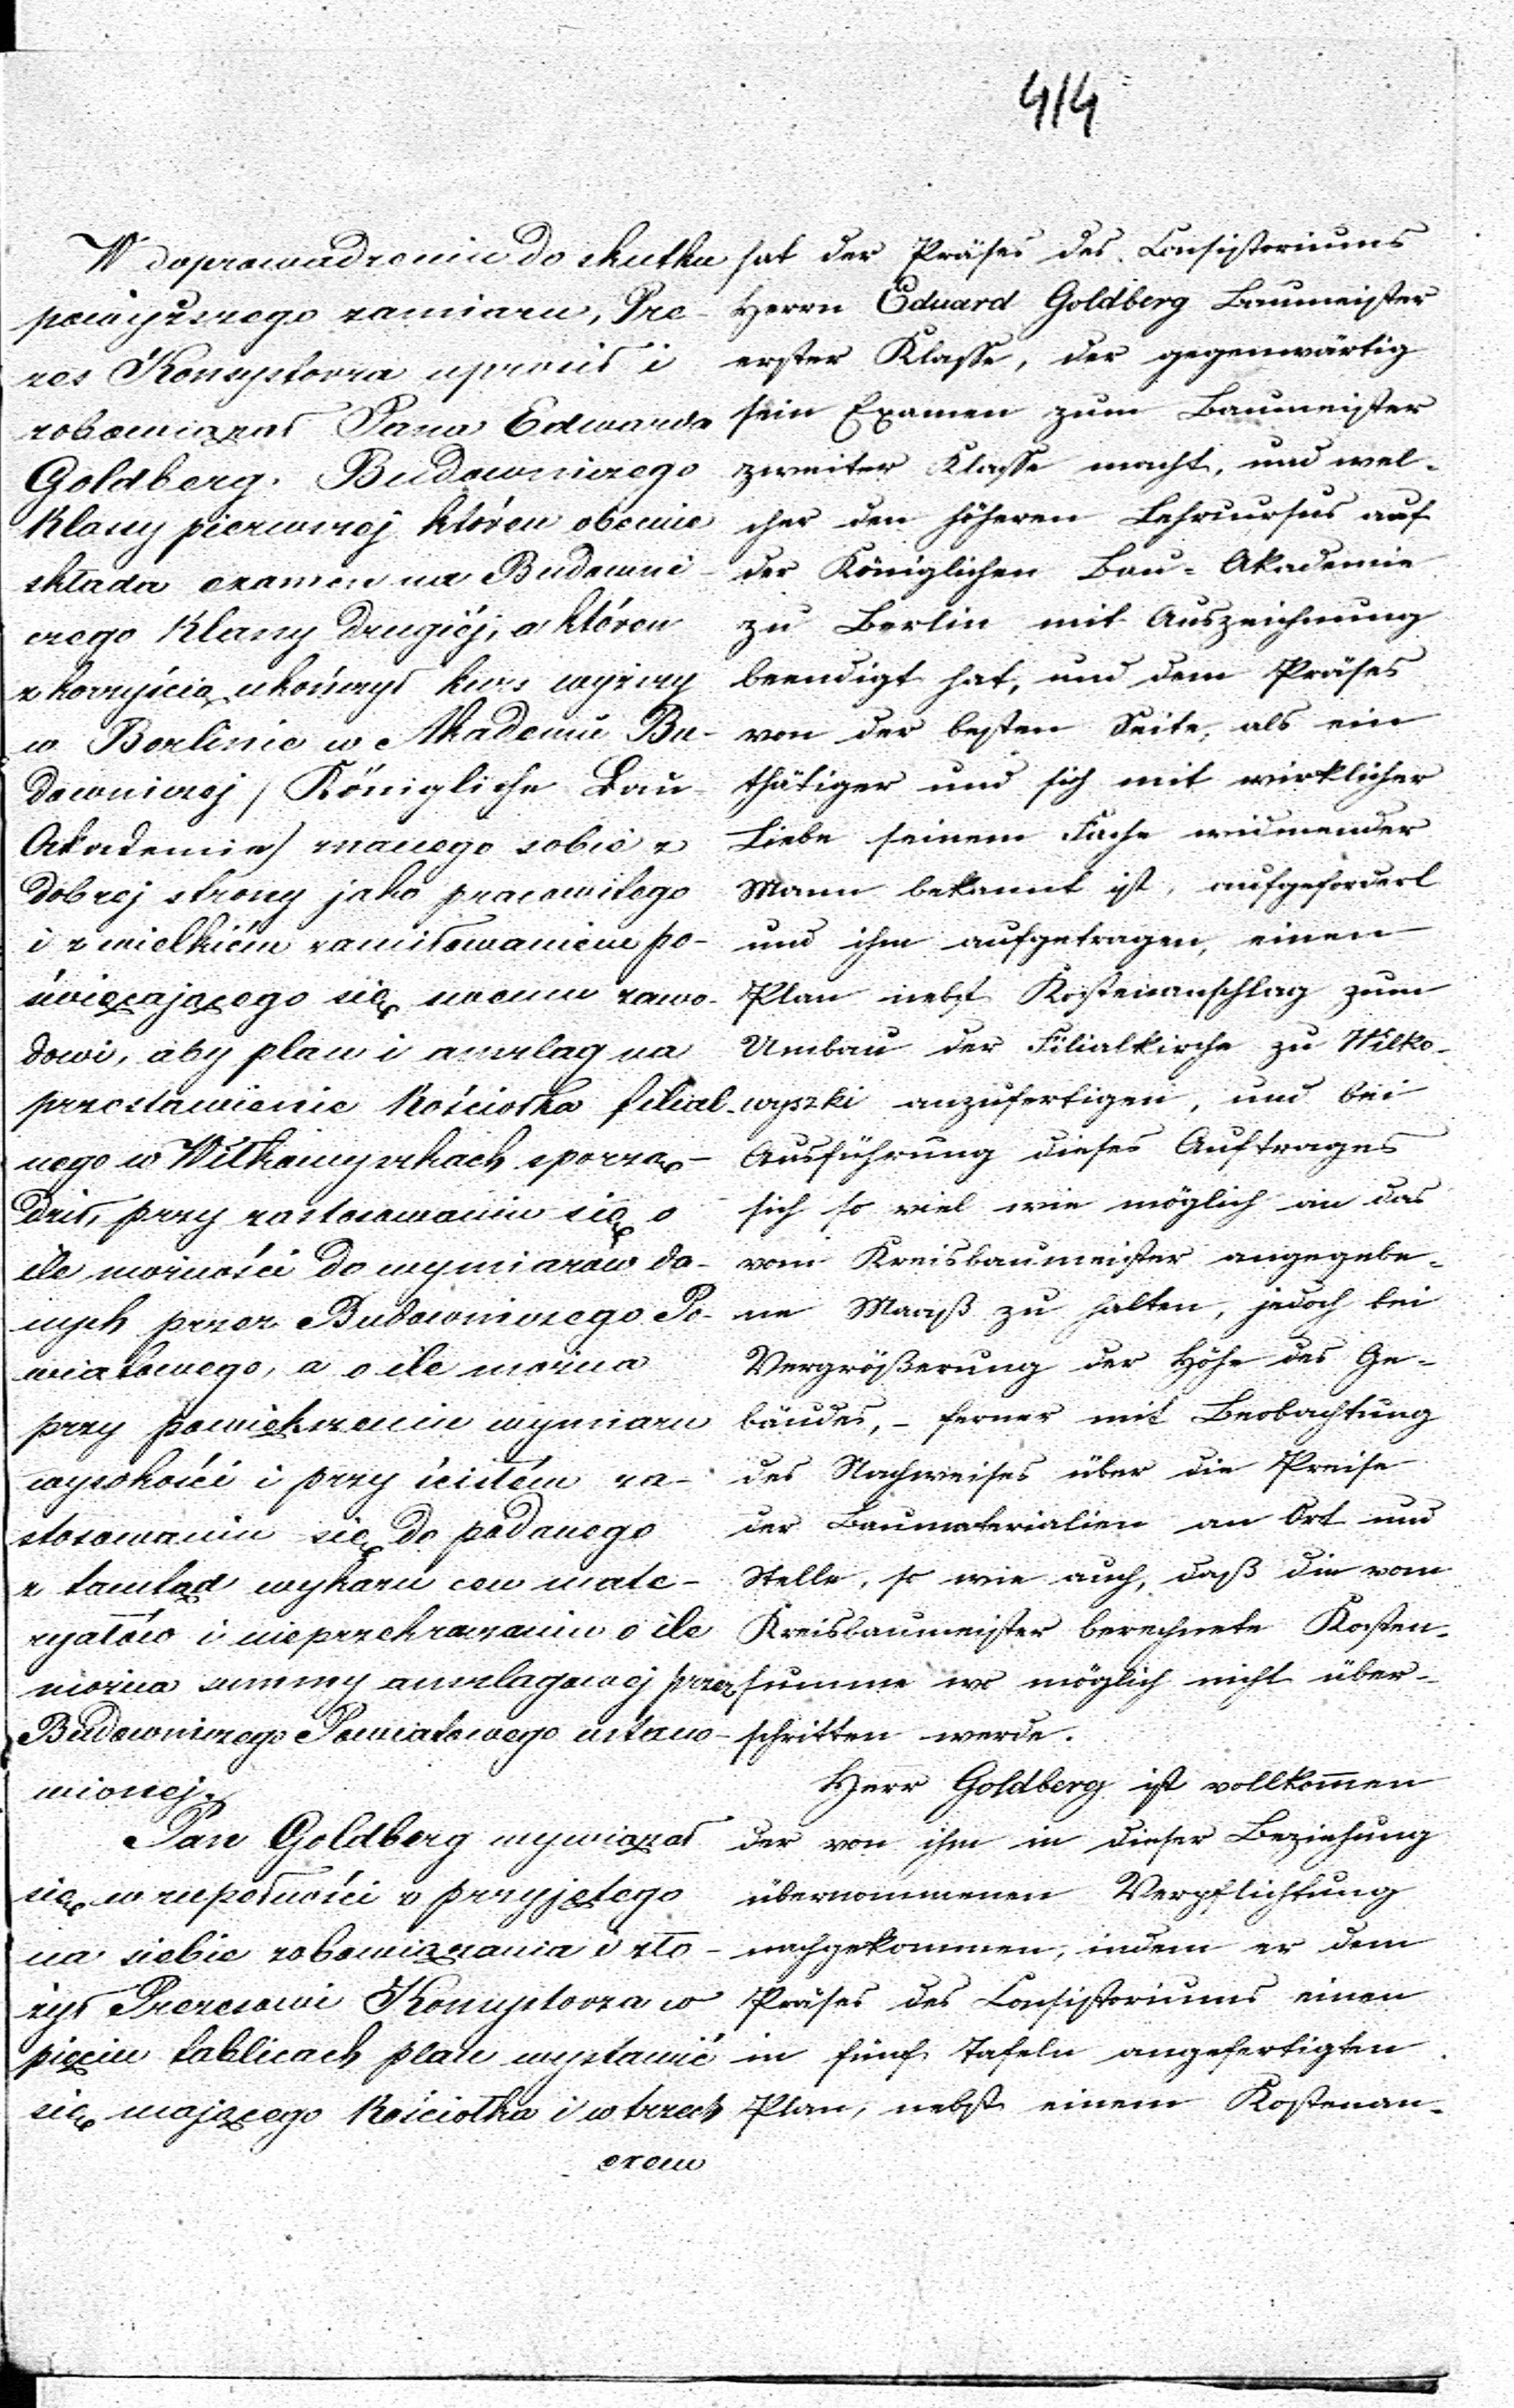 414
W doprowadzeniu do skutku
powyższego zamiaru, Pre-
zes Konsystorza uprosił i
zobowiązał Pana Edwarda
Goldberg. Budowniczego
Klassy pierwszej któren obecnie
składa examen na Budowni-
czego Klassy drugiéj, a któren
z korzyścią ukończył kurs wyższy
w Berlinie w Akademii Bu-
downiczej / Königliche Bau-
Akademie / znanego sobie z
dobrej strony jako pracowitego
i z wielkiém zamiłowaniem po-
święcającego się swemu zawo-
dowi, aby plan i anszlag na
przestawienie Kościołka filial-
nego w Wiłkowyszkach sporzą-
dził, przy zastosowaniu się o
ile możności do wymiarów da-
nych przez Budowniczego Po-
wiatowego, a o ile można
przy powiększeniu wymiaru
wysokości i przy ścisłém za-
stosowaniu się do podanego
z tamtąd wykazu cen mate-
ryałów i nieprzekraczaniu o ile
można summy anszlagowej przez
Budowniczego Powiatowego ustano-
wionej.
Pan Goldberg wywiązał
się w zupełności z przyjętego
na siebie zobowiązania i zło-
żył Prezesowi Konsystorza w
pięciu tablicach plan wystawić
się mającego Kościołka i w trzech
exem
hat der Präses des Consistoriums
Herrn Eduard Goldberg Baumeister
erster Klasse, der gegenwärtig
sein Examen zum Baumeister
zweiter Klasse macht, und wel-
cher den höheren Lehrcursus auf
der Königlichen Bau-Akademie
zu Berlin mit Auszeichnung
beendigt hat, und dem Präses
von der besten Seite, als ein
thätiger und sich mit wirklicher
Liebe seinem Fache widmender
Mann bekannt ist, aufgefordert
und ihm aufgetragen, einen
Plan nebst Kostenanschlag zum
Umbau der Filialkirche zu Wilko-
wyszki anzufertigen, und bei
Ausführung dieses Auftrages
sich so viel wie möglich an das
vom Kreisbaumeister angegebe-
ne Maaß zu halten, jedoch bei
Vergrößerung der Höhe des Ge-
bäudes, - ferner mit Beobachtung
des Nachweises über die Preise
der Baumaterialien an Ort und
Stelle, so wie auch, daß die vom
Kreisbaumeister berechnete Kosten-
summe wo möglich nicht über-
schritten werde.
Herr Goldberg ist vollkommen
der von ihm in dieser Beziehung
übernommenen Verpflichtung
nachgekommen, indem er dem
Präses des Consistoriums einen
in fünf Tafeln angefertigten
Plan, nebst einem Kostenan-